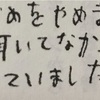 めをやめ
聞いてなか
ていました